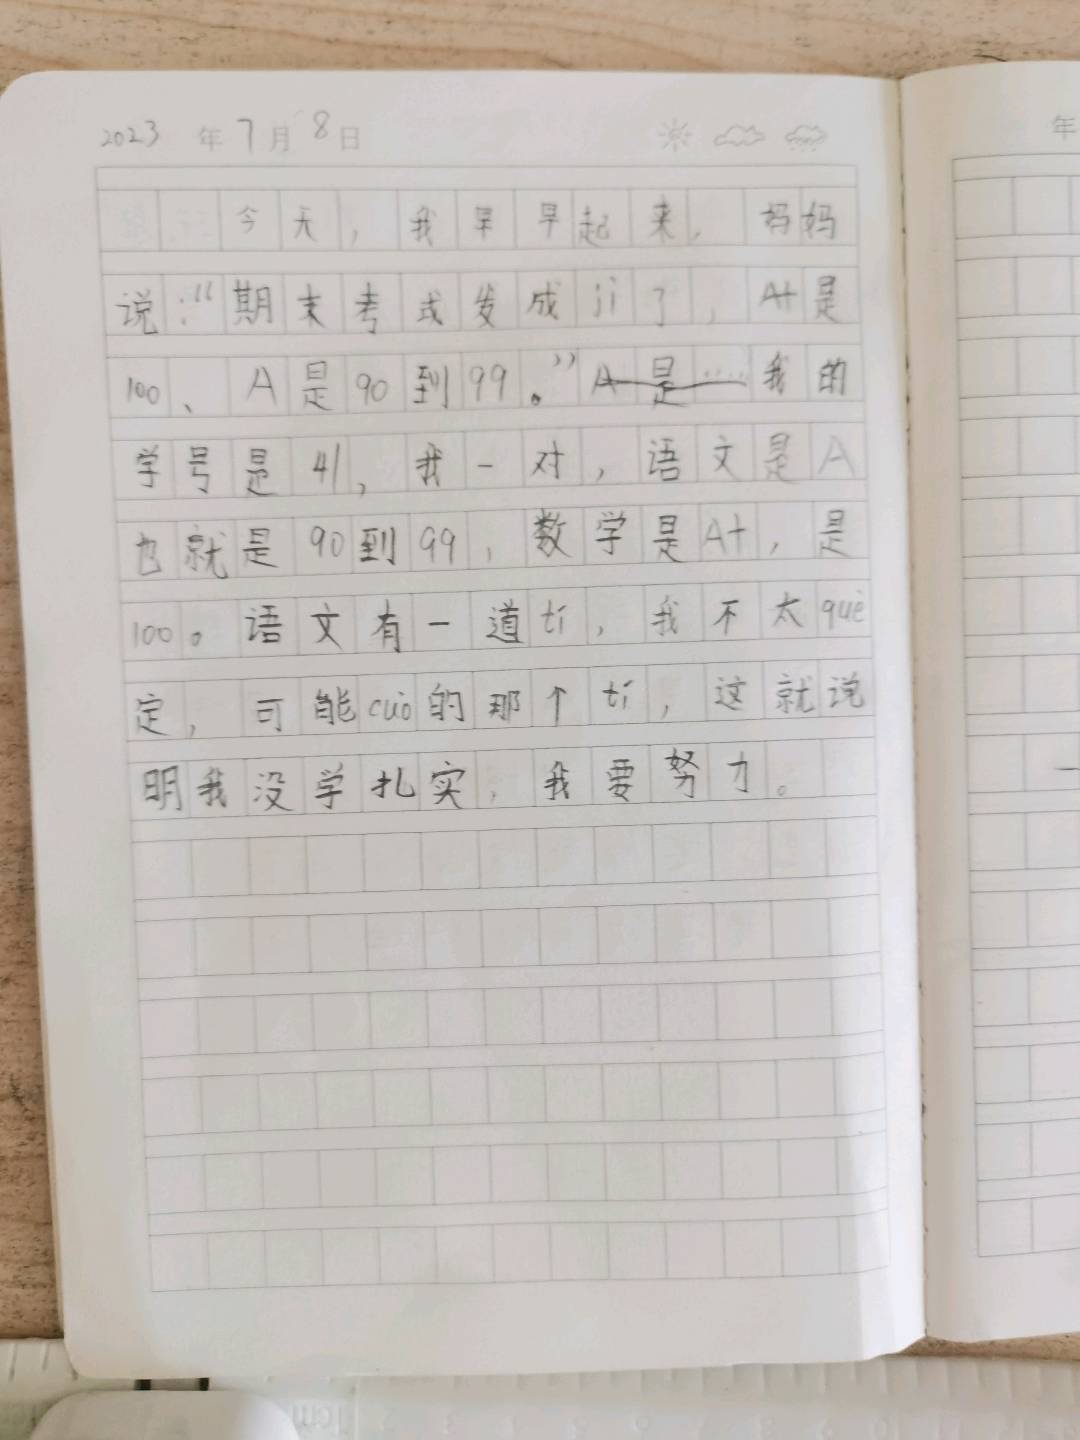 2023 年 7 月 8 日
今天，我早早起来，妈妈
说：“期末考式发成jì了，A+是
100、A是90到99。”A是……我的
学号是41，我一对，语文是A
也就是90到99，数学是A+，是
100。语文有一道tí，我不太què
定，可能cuò的那个tí，这就说
明我没学扎实，我要努力。
年
cm